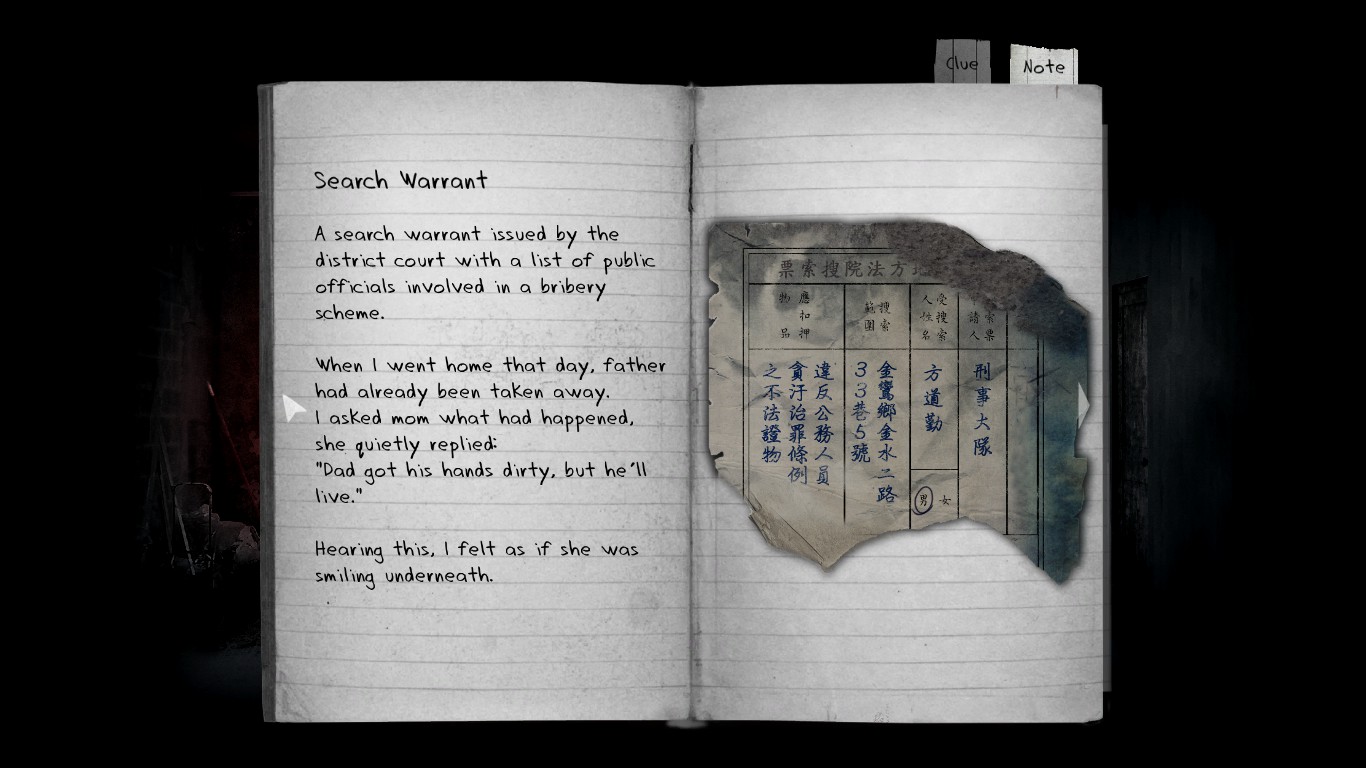 Clue
Note
Search Warrant
A search warrant issued by the
district court with a list of public
officials involved in a bribery
scheme.
When I went home that day, father
had already been taken away.
I asked mom what had happened,
she quietly replied:
"Dad got his hands dirty, but he'll
live."
Hearing this, I felt as if she was
smiling underneath.
票索搜院法方地
索票
請人
刑事大隊
受搜索
人姓名
方道勤
男 女
搜索
範圍
金鸞鄉金水二路
33巷5號
應扣押
物品
違反公務人員
貪汙治罪條例
之不法證物